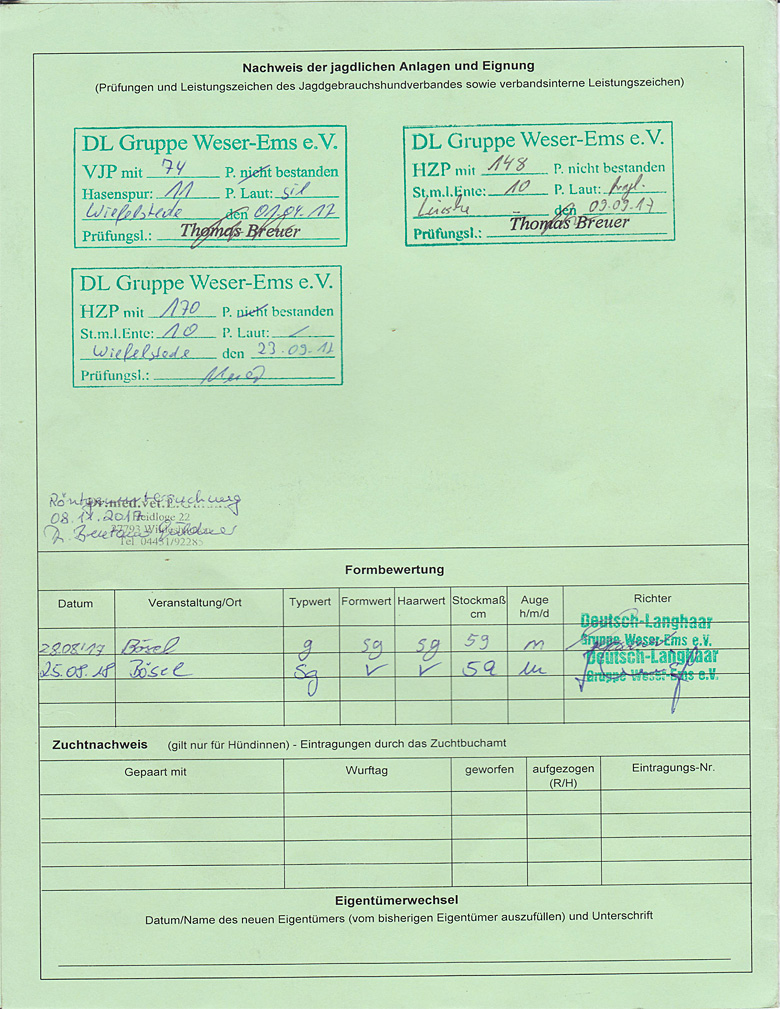 Nachweis der jagdlichen Anlagen und Eignung
(Prüfungen und Leistungszeichen des Jagdgebrauchshundverbandes sowie verbandsinterne Leistungszeichen)
DL Gruppe Weser-Ems e.V.
VJP mit 74 P. nicht bestanden
Hasenspur: 11 P. Laut: sil
Wiefelstede den 01.04.17
Prüfungsl.: Thomas Breuer
DL Gruppe Weser-Ems e.V.
HZP mit 148 P. nicht bestanden
St.m.l.Ente: 10 P. Laut:
den 09.09.17
Prüfungsl.: Thomas Breuer
DL Gruppe Weser-Ems e.V.
HZP mit 170 P. nicht bestanden
St.m.l.Ente: 10 P. Laut: -
Wiefelstede den 23.09.17
Prüfungsl.:
Röntgenuntersuchung
08.11.2017
Tel. 04431/92285
Formbewertung
Datum Veranstaltung/Ort Typwert Formwert Haarwert Stockmaß cm Auge h/m/d Richter
29.08.17 Bösel g sg sg 59 m Deutsch-Langhaar Gruppe Weser-Ems e.V.
25.08.18 Bösel sg v v 59 m Deutsch-Langhaar Gruppe Weser-Ems e.V.
Zuchtnachweis (gilt nur für Hündinnen) - Eintragungen durch das Zuchtbuchamt
Gepaart mit Wurftag geworfen aufgezogen (R/H) Eintragungs-Nr.
Eigentümerwechsel
Datum/Name des neuen Eigentümers (vom bisherigen Eigentümer auszufüllen) und Unterschrift